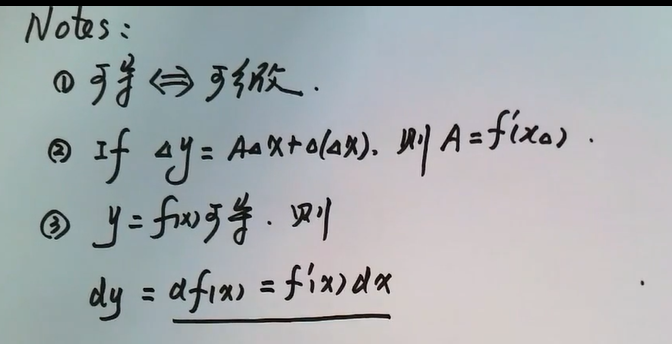 Notes:
① 可导 ⇔ 可微.
② If Δy = AΔx + o(Δx). 则 A = f'(x₀).
③ y = f(x) 可导. 则
dy = df(x) = f'(x)dx